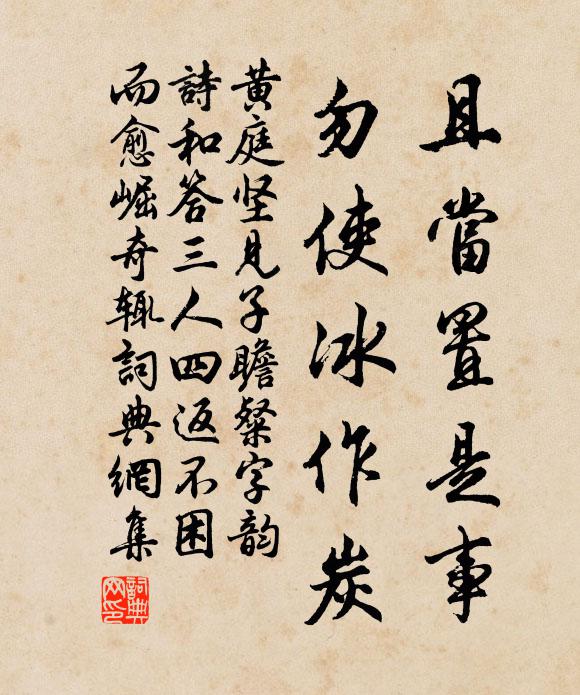 且當置是事
勿使冰作炭
黄庭坚見子瞻粲字韵
詩和答三人四返不困
而愈崛奇輒詞典網集
詞典网印